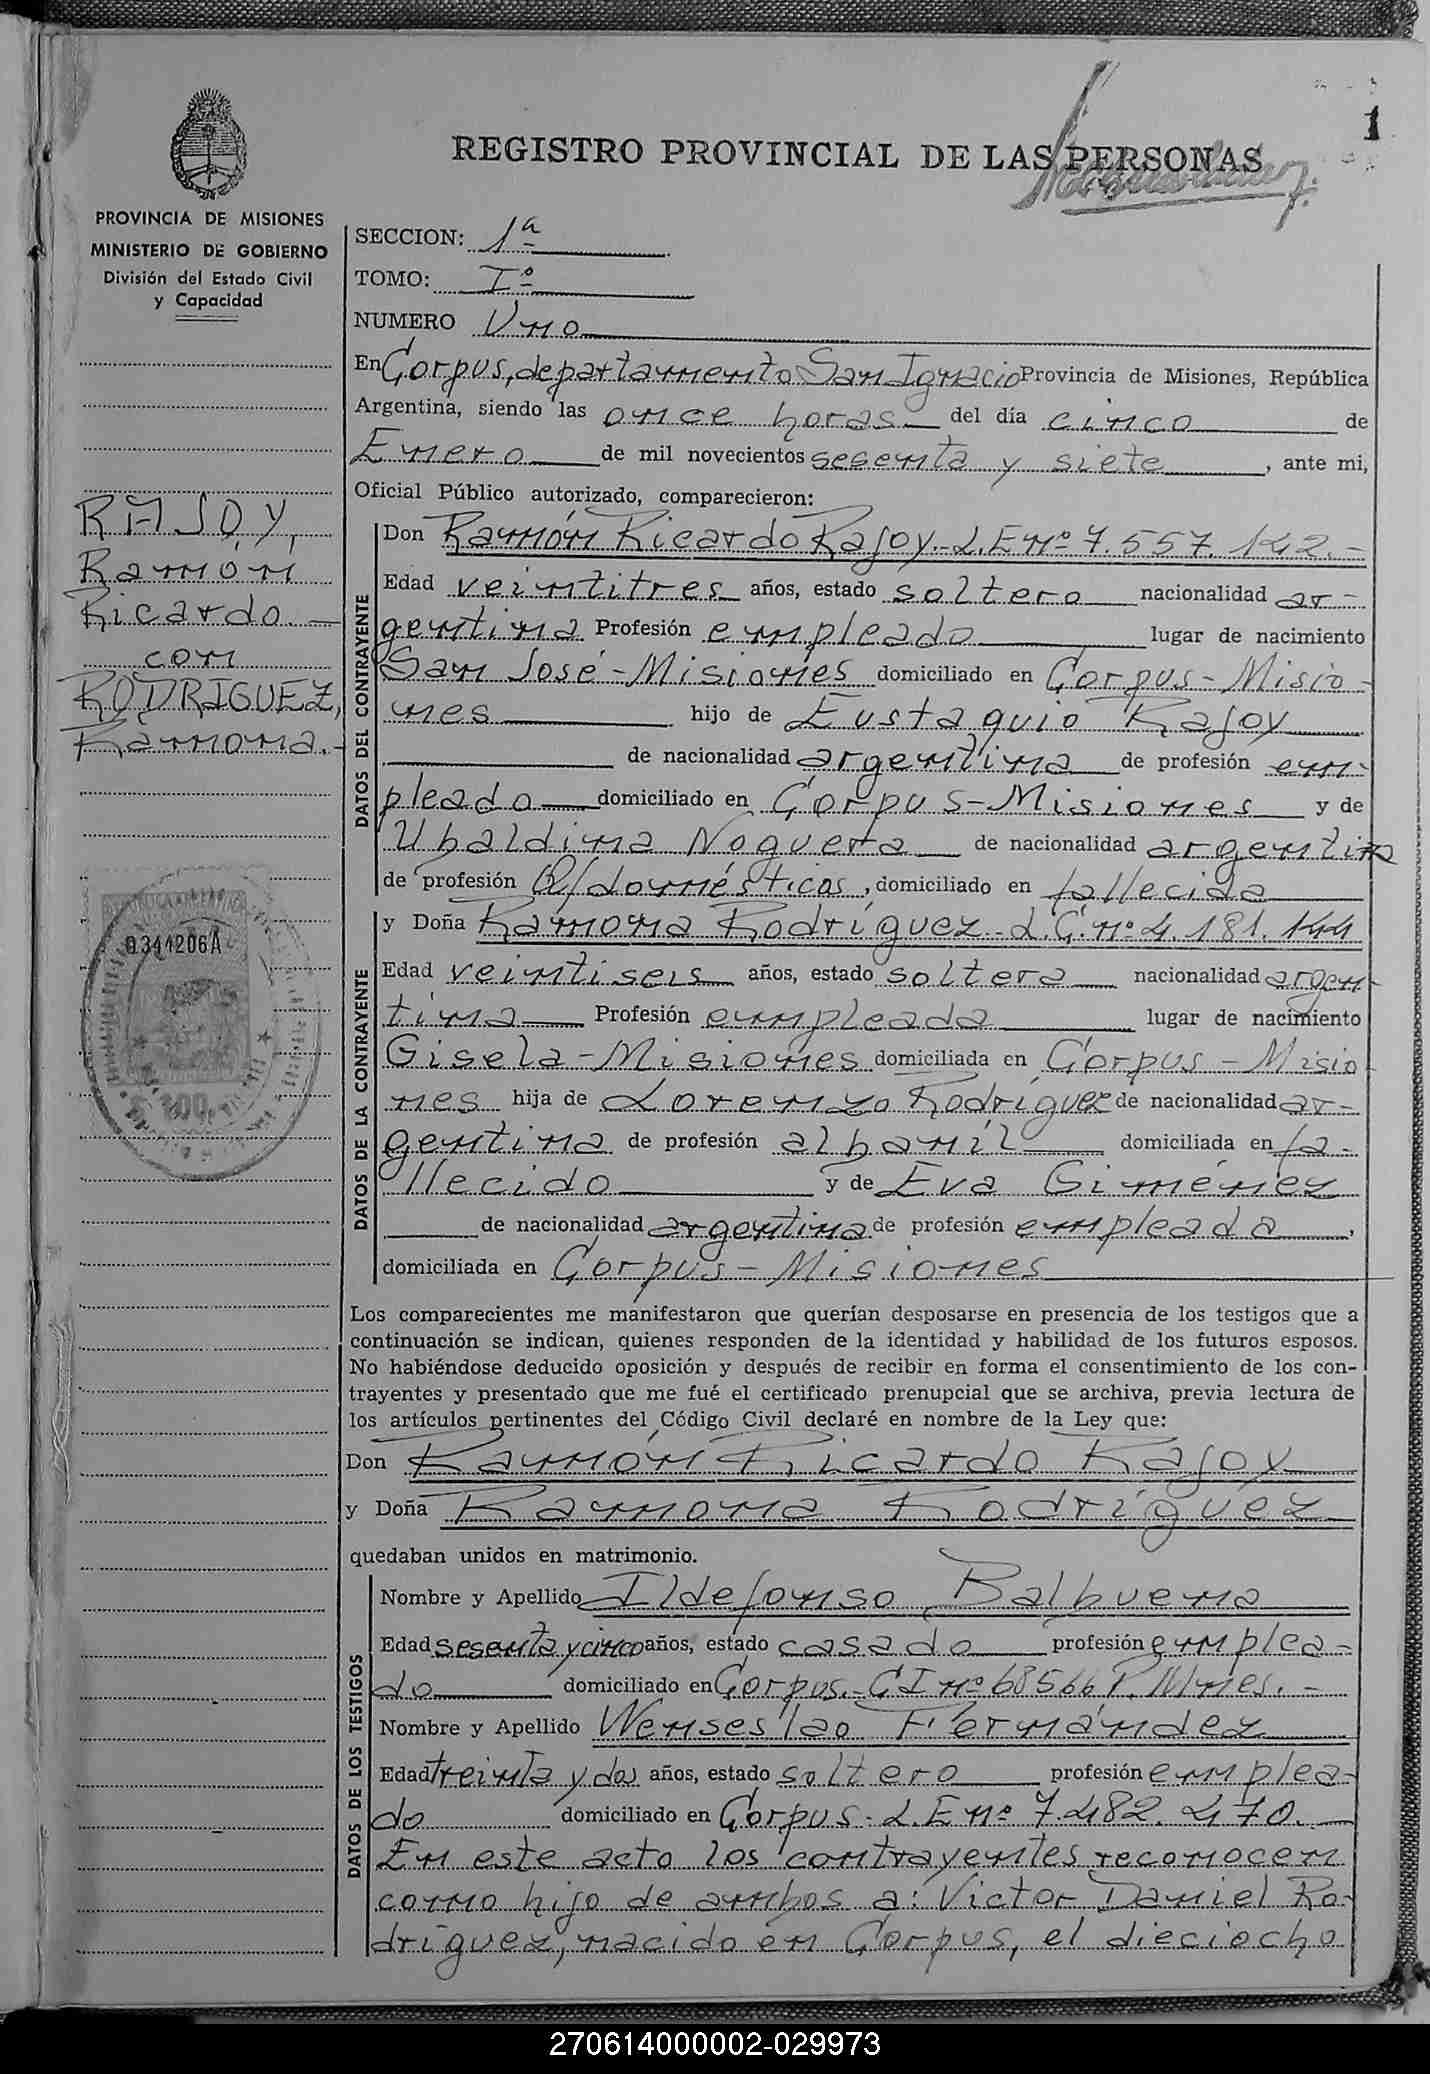 1
REGISTRO PROVINCIAL DE LAS PERSONAS
PROVINCIA DE MISIONES
MINISTERIO DE GOBIERNO
División del Estado Civil
y Capacidad
RAJOY,
Ramón
Ricardo.—
con
RODRIGUEZ,
Ramona.-
0344206A
100
SECCION: 1ª
TOMO: Iº
NUMERO Uno
En Corpus, departamento San Ignacio Provincia de Misiones, República
Argentina, siendo las once horas del día cinco de
Enero de mil novecientos sesenta y siete, ante mi,
Oficial Público autorizado, comparecieron:
DATOS DEL CONTRAYENTE
Don Ramón Ricardo Rajoy.-L.E nº 7.557.142.-
Edad veintitres años, estado soltero nacionalidad ar-
gentina Profesión empleado lugar de nacimiento
San José-Misiones domiciliado en Corpus-Misio-
nes hijo de Eustaquio Rajoy
de nacionalidad argentina de profesión em-
pleado domiciliado en Corpus-Misiones y de
Ubaldina Noguera de nacionalidad argentina
de profesión Q/domésticos, domiciliado en fallecida
DATOS DE LA CONTRAYENTE
y Doña Ramona Rodríguez-L.C.nº 4.181.144
Edad veintiseis años, estado soltera nacionalidad argen-
tina Profesión empleada lugar de nacimiento
Gisela-Misiones domiciliada en Corpus-Misio
nes hija de Lorenzo Rodríguez de nacionalidad ar-
gentina de profesión albanil domiciliada en fa-
llecido y de Eva Giménez
de nacionalidad argentina de profesión empleada,
domiciliada en Corpus-Misiones
Los comparecientes me manifestaron que querían desposarse en presencia de los testigos que a
continuación se indican, quienes responden de la identidad y habilidad de los futuros esposos.
No habiéndose deducido oposición y después de recibir en forma el consentimiento de los con-
trayentes y presentado que me fué el certificado prenupcial que se archiva, previa lectura de
los artículos pertinentes del Código Civil declaré en nombre de la Ley que:
Don Ramón Ricardo Rajoy
y Doña Ramona Rodríguez
quedaban unidos en matrimonio.
DATOS DE LOS TESTIGOS
Nombre y Apellido Ildefonso Balbuena
Edad sesenta y cinco años, estado casado profesión emplea-
do domiciliado en Corpus.-CI nº 68566 P. Mnes.-
Nombre y Apellido Wenseslao Fernández
Edad treinta y dos años, estado soltero profesión emplea-
do domiciliado en Corpus-L.E nº 7.482.470.
En este acto los contrayentes reconocen
como hijo de ambos a: Victor Daniel Ro-
dríguez, nacido en Corpus, el dieciocho
270614000002-029973